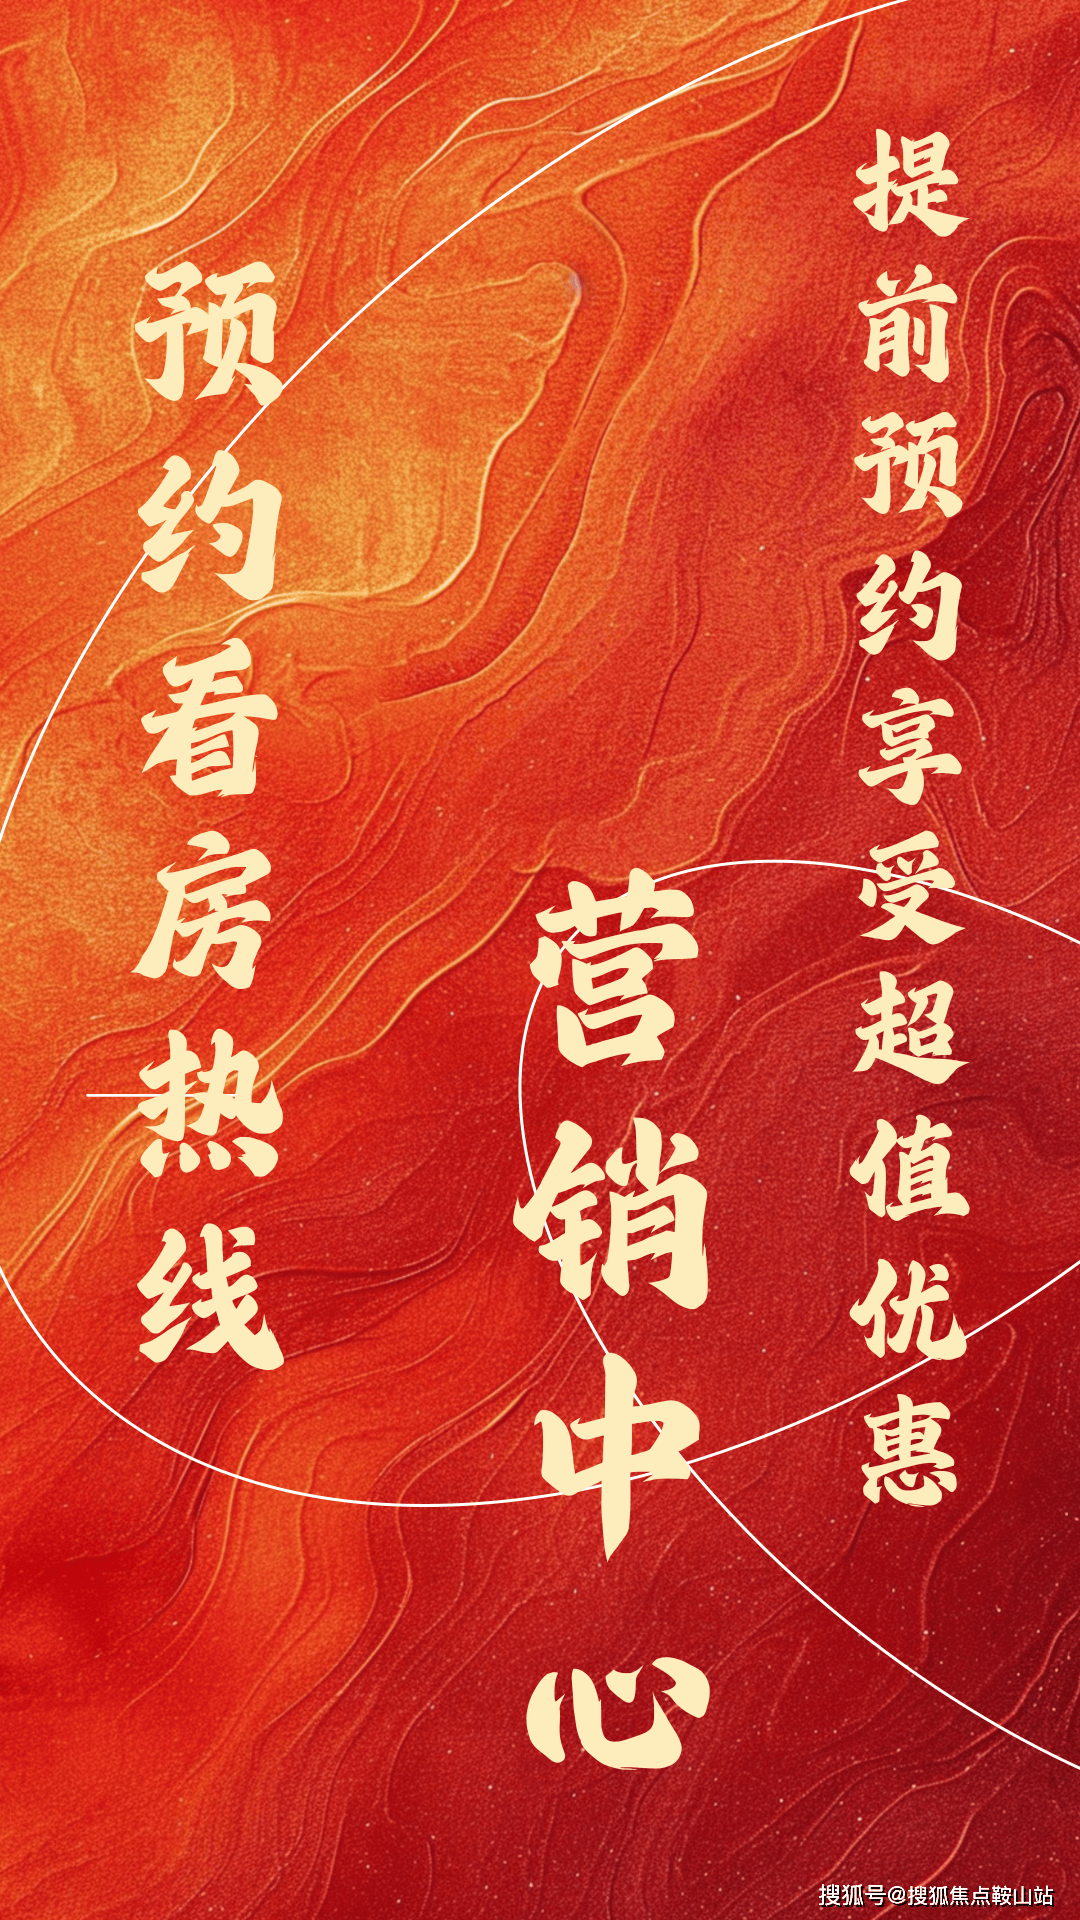 提前预约享受超值优惠
营销中心
预约看房热线
搜狐号@搜狐焦点鞍山站